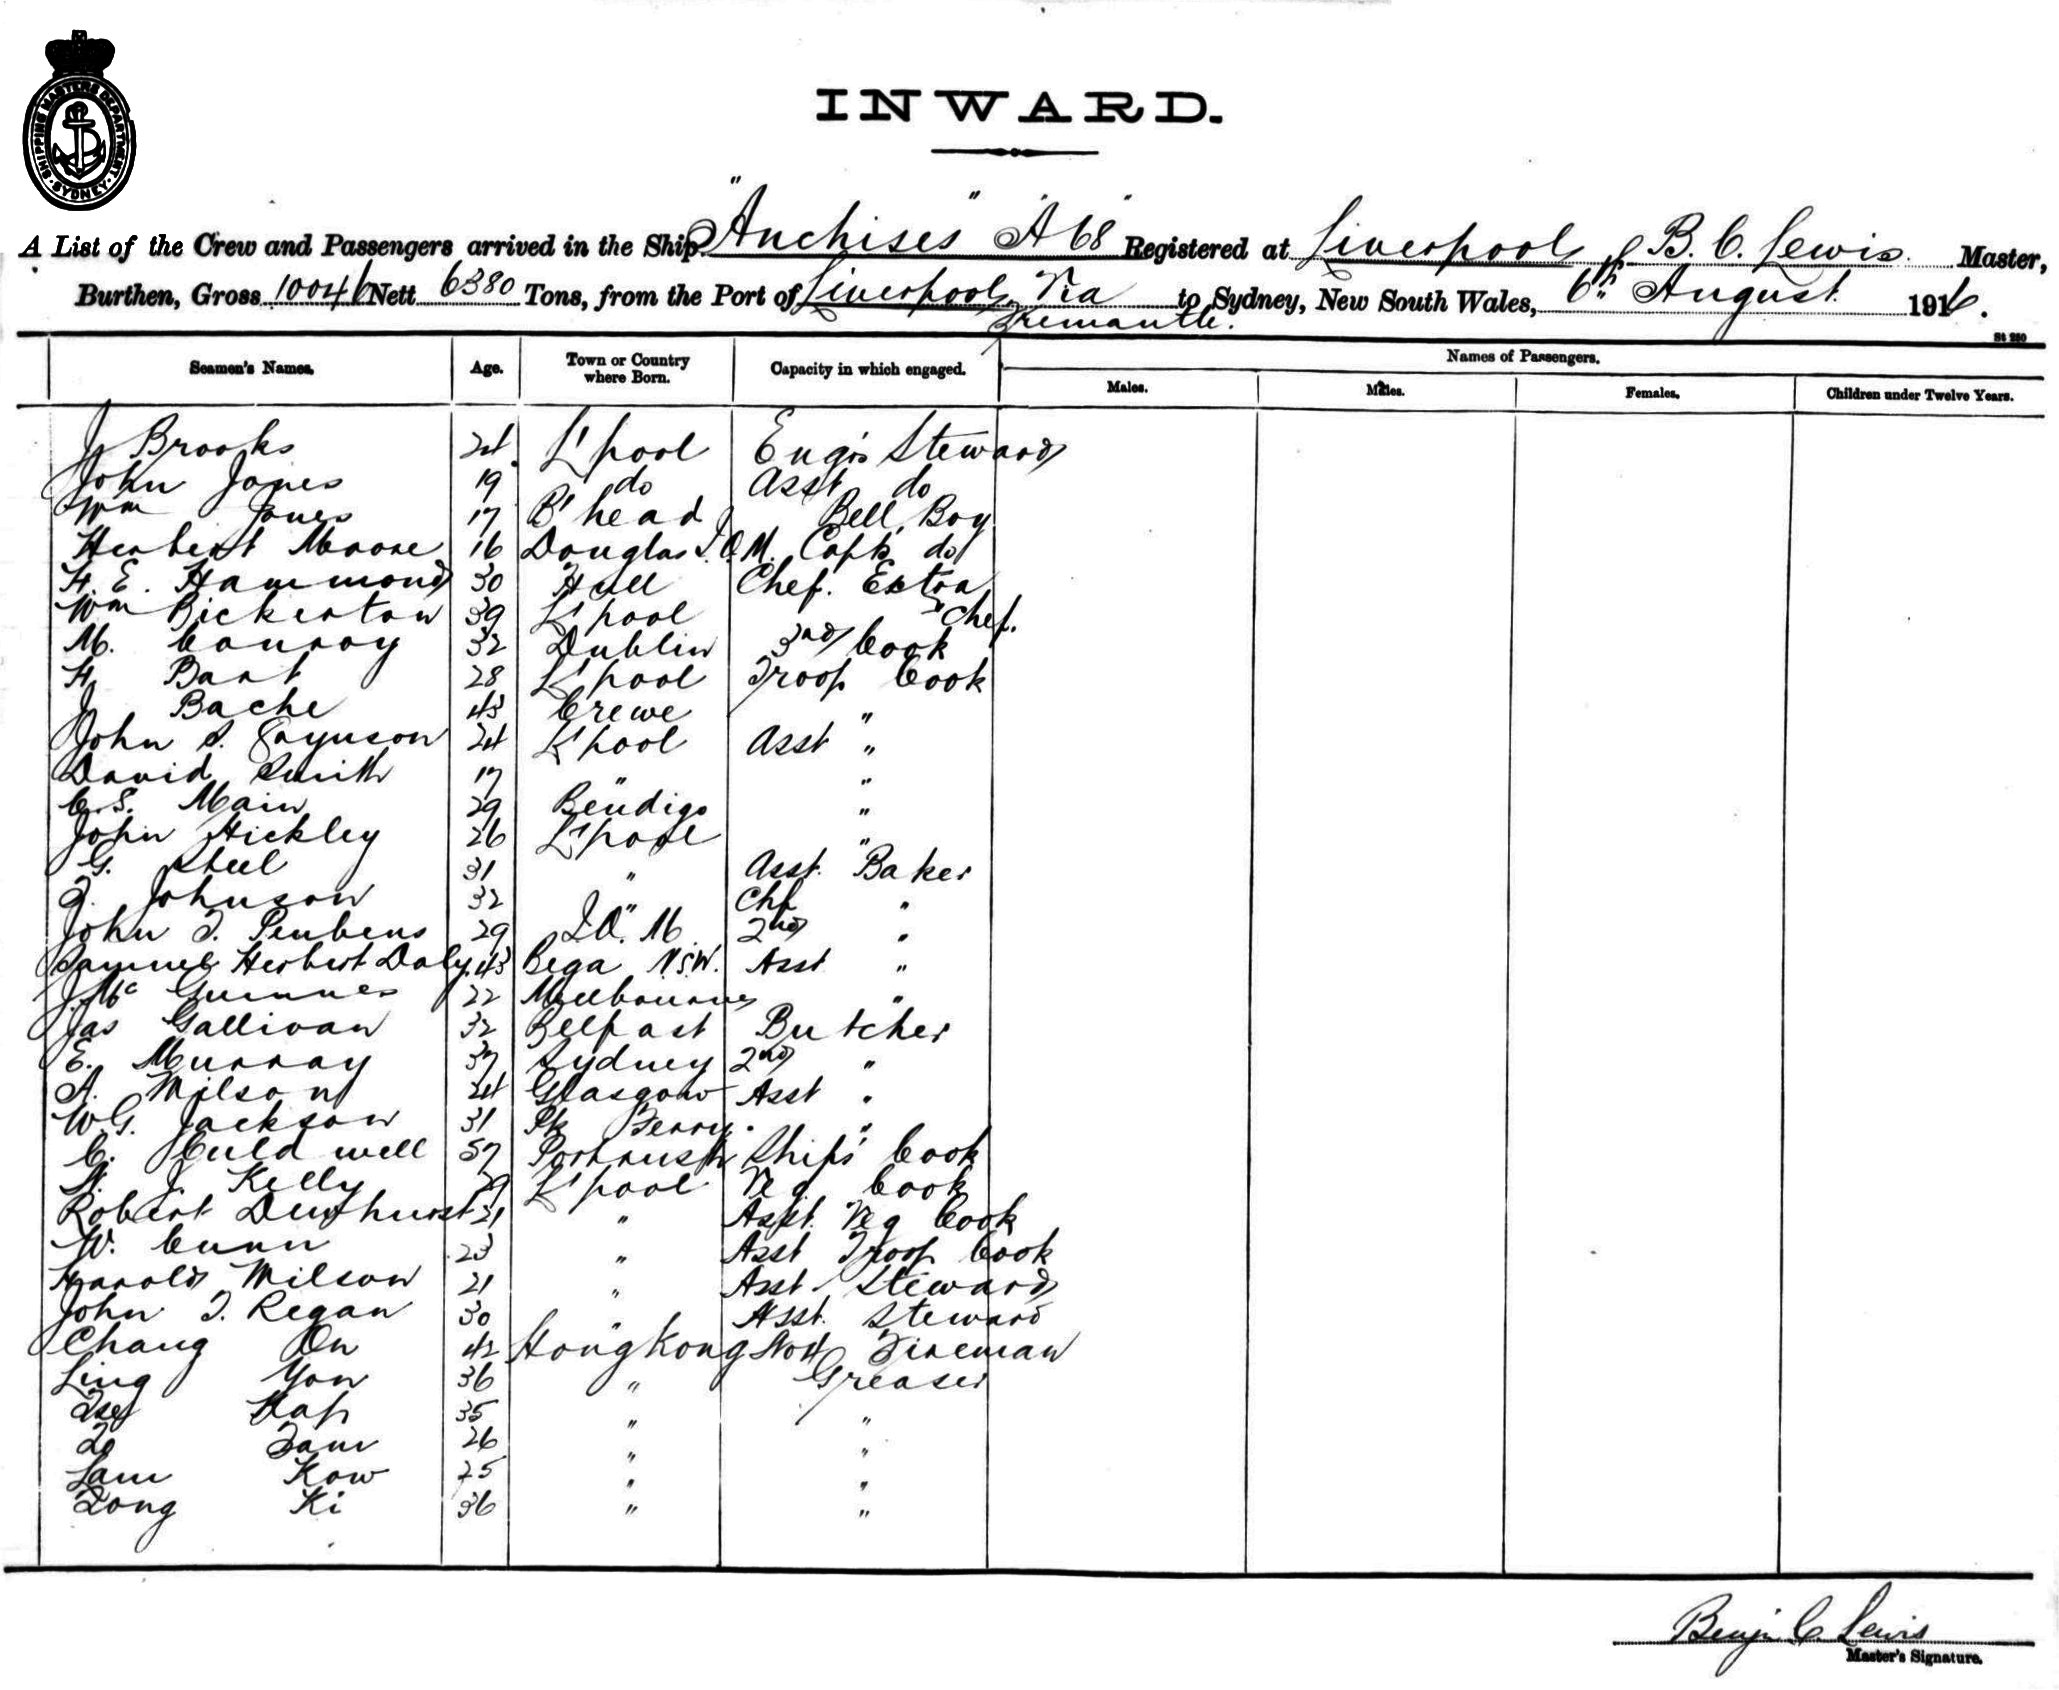 SHIPPING MASTERS DEPARTMENT · SYDNEY ·
INWARD.
A List of the Crew and Passengers arrived in the Ship "Anchises" "A68" Registered at Liverpool, B. C. Lewis Master,
Burthen, Gross 10046 Nett 6380 Tons, from the Port of Liverpool, Via Fremantle. to Sydney, New South Wales, 6th August 1916.
St 280
Seamen's Names. Age. Town or Country where Born. Capacity in which engaged. Names of Passengers.
Males. Males. Females. Children under Twelve Years.
J Brooks 24 L'pool Engrs Steward
John Jones 19 do Asst do
Wm Jones 17 B'head Bell Boy
Herbert Moore 16 Douglas I.O.M. Capts do
H. E. Hammond 30 Hull Chef. Extra
Wm Bickerton 39 L'pool Chef.
M. Conroy 32 Dublin 3rd Cook
H. Bant 28 L'pool Troop Cook
J Bache 43 Crewe "
John S. 24 L'pool Asst "
David Smith 17 " "
C. S. Main 29 Bendigo "
John Hickley 26 L'pool "
G. Steel 31 " Asst. Baker
J. Johnson 32 " Chf "
John J. 29 I.O.M 2nd "
Samuel Herbert Daly 43 Bega N.S.W. Asst "
J. Mc Guinnes 22 Melbourne "
Jas Gallivan 32 Belfast Butcher
E. Murray 37 Sydney 2nd "
A. Wilson 24 Glasgow Asst "
W. G. Jackson 31 "
C. Culdwell 57 Portrush Ships Cook
J Kelly 29 L'pool Veg Cook
Robert Dewhurst 21 " Asst. Veg Cook
W. Cunn 23 " Asst Troop Cook
Harold Wilson 21 " Asst Steward
John J. Regan 30 " Asst. Steward
Chang On 42 HongKong No 4 Fireman
Ling Yon 36 " Greaser
Tse Hap 35 " "
To Tam 26 " "
Lam Kow 25 " "
Tong Ki 36 " "
Benjn. C. Lewis
Master's Signature.